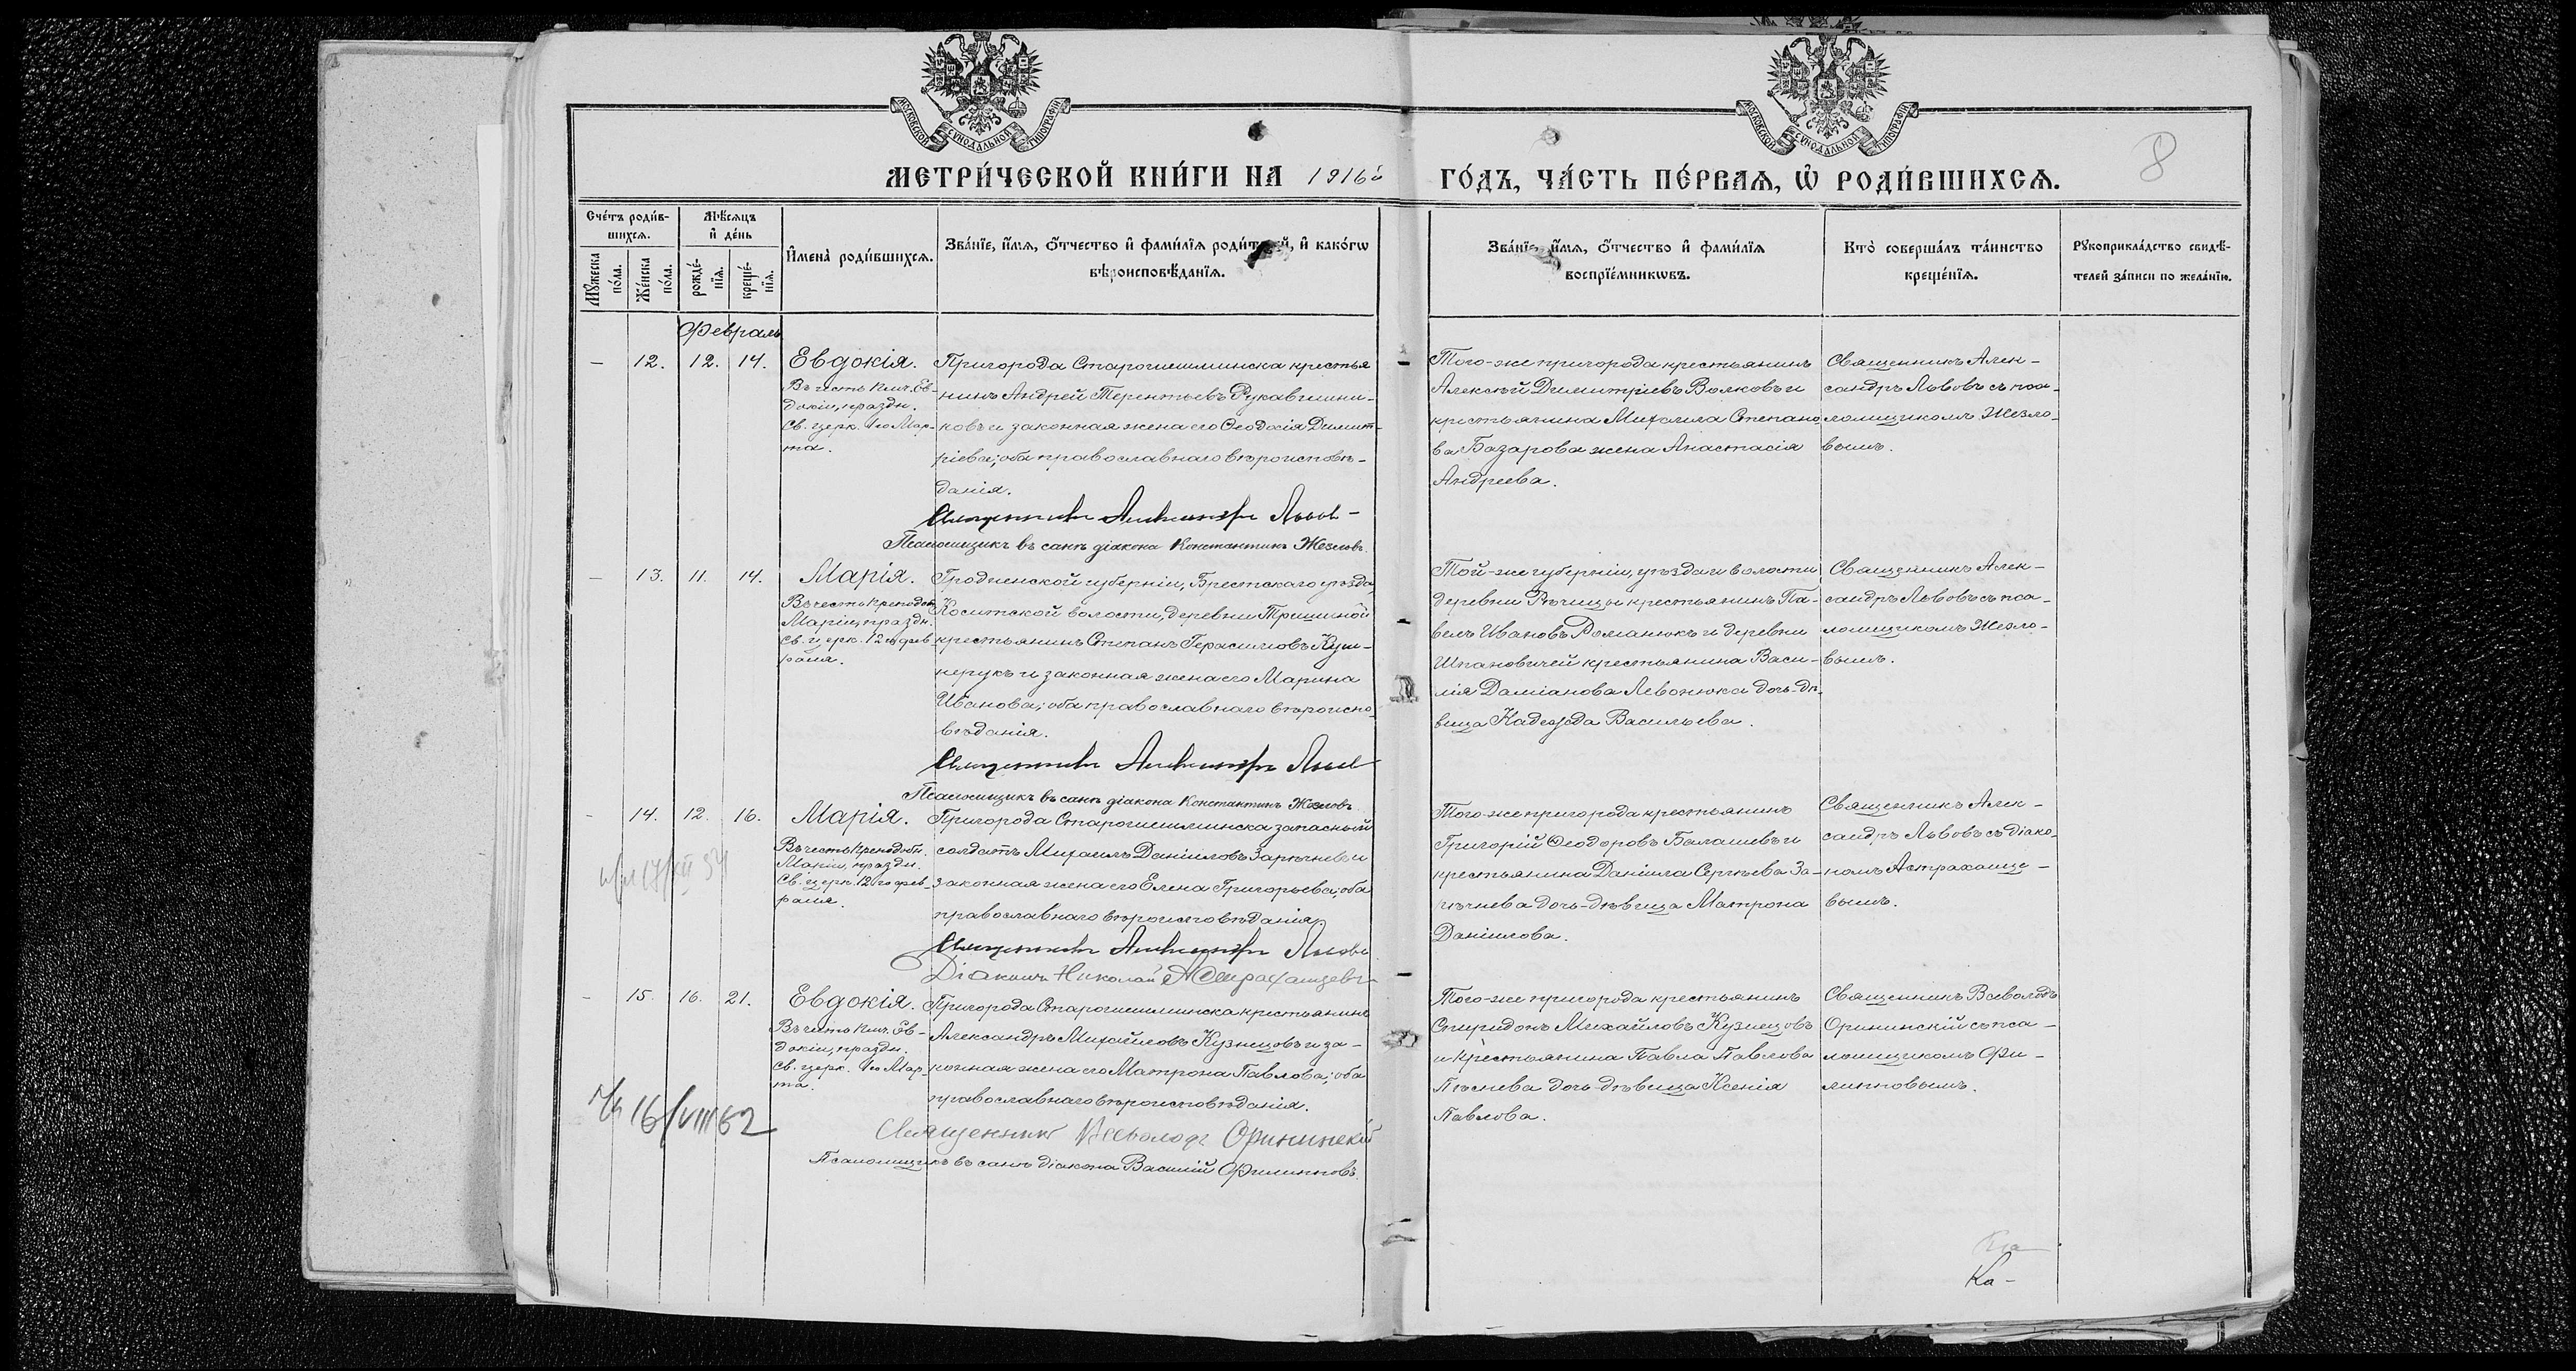 МОСКОВСКОЙ СѴНОДАЛЬНОЙ ТИПОГРАФІИ
МОСКОВСКОЙ СѴНОДАЛЬНОЙ ТИПОГРАФІИ
МЕТРИ́ЧЕСКОЙ КНИ́ГИ НА 1916й ГО́ДЪ, ЧА́СТЬ ПЕ́РВАѦ, Ѡ҆ РОДИ́ВШИХСѦ.
8
Сче́тъ роди́в-
шихсѧ.
Мѣ́сѧцъ
и҆ де́нь
Мꙋ́жеска
по́ла.
Же́нска
по́ла.
рожде́-
нїѧ.
креще́-
нїѧ.
И҆мена̀ роди́вшихсѧ.
Зва́нїе, и҆́мѧ, ѻ҆́тчество и҆ фами́лїѧ роди́телей, и҆ како́гѡ
вѣроисповѣ́данїѧ.
Зва́нїе, и҆́мѧ, ѻ҆́тчество и҆ фами́лїѧ
воспрїе́мникѡвъ.
Кто̀ соверша́лъ та́инство
креще́нїѧ.
Рꙋкоприкла́дство свидѣ́-
телей за́писи по жела́нїю.
Февраль
— 12. 12. 14. Евдокія.
Въ честь Пмч. Ев-
докіи, праздн.
Св. церк. 1го Мар-
та.
Пригорода Старошешминска крестья
нинъ Андрей Терентьевъ Рукавишни-
ковъ и законная жена его Ѳеодосія Димит-
ріева; оба православнаго вѣроисповѣ-
данія.
Священникъ Александръ Львовъ
Псаломщикъ въ санѣ діакона Константинъ Жезловъ.
Того-же пригорода крестьянинъ
Алексѣй Димитріевъ Волковъ и
крестьянина Михаила Степано
ва Базарова жена Анастасія
Андреева.
Священникъ Алек-
сандръ Львовъ съ пса-
ломщикомъ Жезло-
вымъ.
— 13. 11. 14. Марія.
Въ честь Преподоб.
Маріи, праздн.
Св. церк. 12го фев-
раля.
Гродненской губерніи, Брестскаго уѣзда,
Коситской волости, деревни Тришиной
крестьянинъ Степанъ Герасимовъ Куш-
нерукъ и законная жена его Марина
Иванова; оба православнаго вѣроиспо-
вѣданія.
Священникъ Александръ Львовъ
Псаломщикъ въ санѣ діакона Константинъ Жезловъ.
Той-же губерніи, уѣзда и волости
деревни Рѣчицы крестьянинъ Па-
велъ Ивановъ Романюкъ и деревни
Шпановичей крестьянина Васи-
лія Даміанова Левонюка дочь-дѣ-
вица Надежда Васильева.
Священникъ Алек-
сандръ Львовъ съ пса-
ломщикомъ Жезло-
вымъ.
- 14. 12. 16. Марія.
Въ честь Преподобн.
Маріи, праздн.
Св. церк. 12го фев-
раля.
Пригорода Старошешминска запасный
солдатъ Михаилъ Даніиловъ Зарѣчневъ и
законная жена его Елена Григорьева; оба
православнаго вѣроисповѣданія.
Священникъ Александръ Львовъ
Діаконъ Николай Астраханцевъ
Того-же пригорода крестьянинъ
Григорій Ѳеодоровъ Балашевъ и
крестьянина Даніила Сергѣева За-
рѣчнева дочь-дѣвица Матрона
Даніилова.
Священникъ Алек-
сандръ Львовъ съ діако-
номъ Астраханце-
вымъ.
- 15. 16. 21. Евдокія.
Въ честь Пмч. Ев-
докіи, праздн.
Св. церк. 1го Мар-
та.
16/VIII 62
Пригорода Старошешминска крестьянинъ
Александръ Михайловъ Кузнецовъ и за-
конная жена его Матрона Павлова; оба
православнаго вѣроисповѣданія.
Священникъ Всеволодъ Орининскій
Псаломщикъ въ санѣ діакона Василій Филипповъ.
Того-же пригорода крестьянинъ
Спиридонъ Михайловъ Кузнецовъ
и крестьянина Павла Павлова
Пѣснева дочь-дѣвица Ксенія
Павлова.
Священникъ Всеволодъ
Орининскій съ пса-
ломщикомъ Фи-
липповымъ.
Ка-